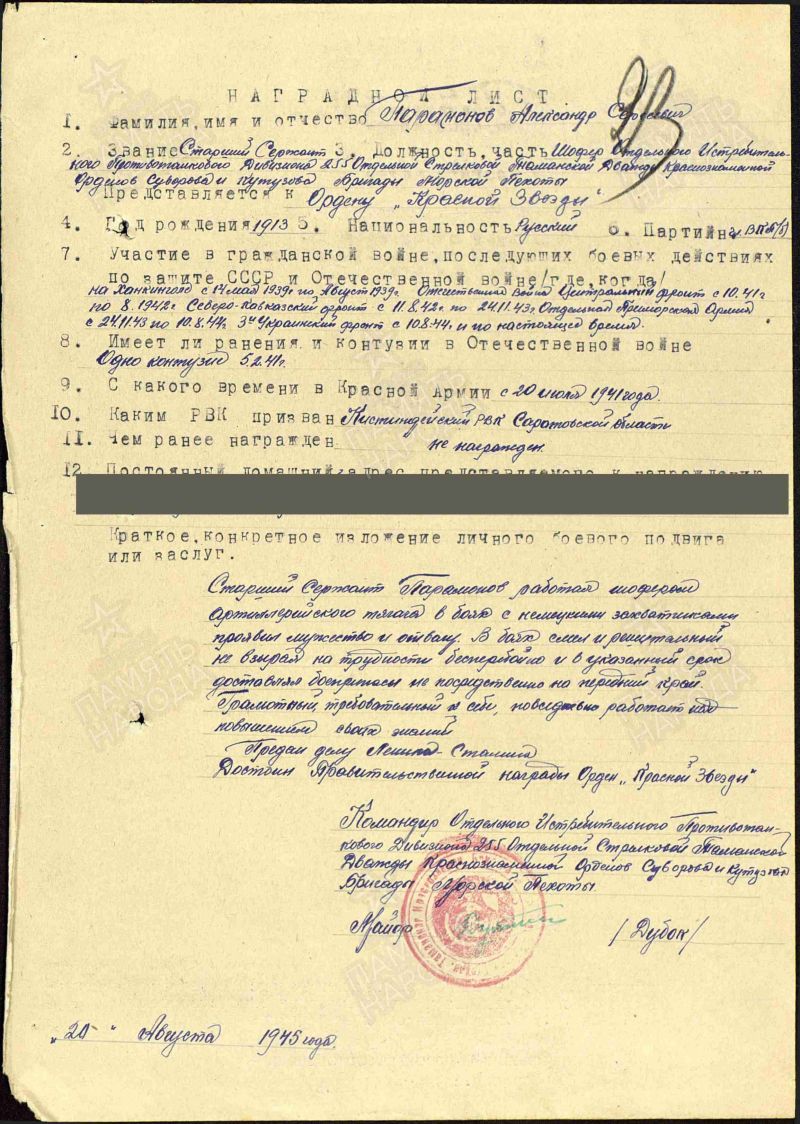 НАГРАДНОЙ ЛИСТ
23
1. Фамилия,имя и отчество Парамонов Александр Сергеевич
2. Звание Старший Сержант 3. Должность,часть Шофер Отдельного Истребитель-
ного Противотанкового Дивизиона 255 Отдельной Стрелковой Таманской Дважды Краснознаменной
Орденов Суворова и Кутузова Бригады Морской Пехоты
Представляется к Ордену „Красной Звезды"
4. Год рождения 1913 5. Национальность Русский 6. Партийн. ВКП(б)
7. Участие в гражданской войне,последующих боевых действиях
по защите СССР и Отечественной войне/где,когда/
на Ханкингол с 14 мая 1939г по Август 1939г. Отечественная Война Центральный фронт с 10.41г
по 8.1942г Северо-Кавказский фронт с 11.8.42г. по 24.11.43г Отдельная Приморская Армия
с 24.11.43 по 10.8.44г. 3й Украинский фронт с 10.8.44г. и по настоящее время.
8. Имеет ли ранения и контузии в Отечественной войне
Одно контузие 5.2.41г.
9. С какого времени в Красной Армии с 20 июля 1941 года.
10. Каким РВК призван РВК Саратовской области
11. Чем ранее награжден не награжден.
12. Постоянный домашний адрес представляемого к награждению
Краткое,конкретное изложение личного боевого подвига
или заслуг.
Старший Сержант Парамонов работая шофером
артиллерийского тягача в боях с немецкими захватчиками
проявил мужество и отвагу. В боях смел и решительный
не взырая на трудности бесперебойно и в указанный срок
доставлял боеприпасы не посредственно на передний край.
Грамотный, требовательный к себе, повседневно работает над
повышением своих знаний
Предан делу Ленина Сталина
Достоин Правительственной награды Орден „Красной Звезды"
Командир Отдельного Истребительного Противотан-
кового Дивизиона 255 Отдельной Стрелковой Таманской
Дважды Краснознаменной Орденов Суворова и Кутузова
Бригады Морской Пехоты
Майор /Дубок/
„20" Августа 1945 года.
ПАМЯТЬ НАРОДА